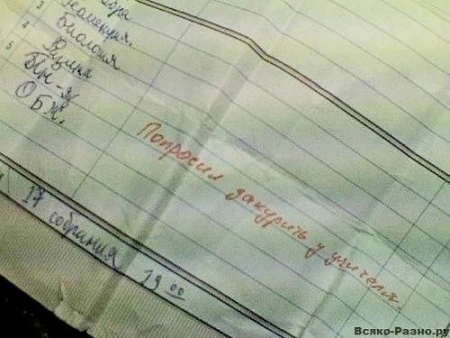 3 Геометрия
4 Биология
5 Физика
ОБЖ.
Попросил закурить у учителя.
17 собрания 19 00
Всяко-Разно.ру